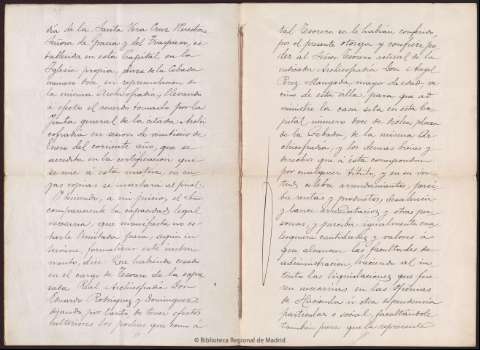 dia de la Santa Vera Cruz Nuestra
Señora de Gracia y del Traspaso, es
tablecida en esta Capital, en la
Iglesia propia, plaza de la Cebada
numero doce en representacion de
la misma Archicofradia, llevando
á efecto el acuerdo tomado por la
Junta general de la citada Archi
cofradia en sesion de veintiuno de
Enero del corriente año, que se
acredita en la certificacion que
se une á esta matriz, en cu
yas copias se insertará al final.
Teniendo, á mi juicio, el
compareciente la capacidad legal
necesaria, que manifiesta no es
tarle limitada para, segun in
terviene, formalizar este instru
mento, dice: Que habiendo cesado
en el cargo de Tesorero de la expre
sada Real Archicofradia Don
Eduardo Rodriguez y Dominguez
dejando por tanto de tener efectos
ulteriores los poderes que como á
tal Tesorero se le habian conferido,
por el presente otorga y confiere po
der al Señor Tesorero actual de la
indicada Archicofradia Don Angel
Perez mayor de edad ve
cino de esta villa para que ad
ministre la casa sita en esta Ca
pital, numero doce de dicha plaza
de la Cebada, de la misma Ar
chicofradia, y los demas bienes y
derechos que á esta correspondan
por cualquier titulo, y en su vir
tud, celebre arrendamientos, perci
ba rentas y productos, desahucie
y lance arrendatarios y otras per
sonas, y perciba igualmente cua
lesquiera cantidades y valores á
que alcancen las facultades de
administracion, haciendo al in
tento las liquidaciones que fue
ren necesarias en las Oficinas
de Hacienda ú otra dependencia
particular ó social, facultándole
tambien para que la represente
© Biblioteca Regional de Madrid